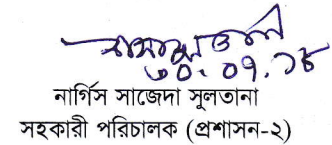 ৩০.০৭.১৮
নার্গিস সাজেদা সুলতানা
সহকারী পরিচালক (প্রশাসন-২)